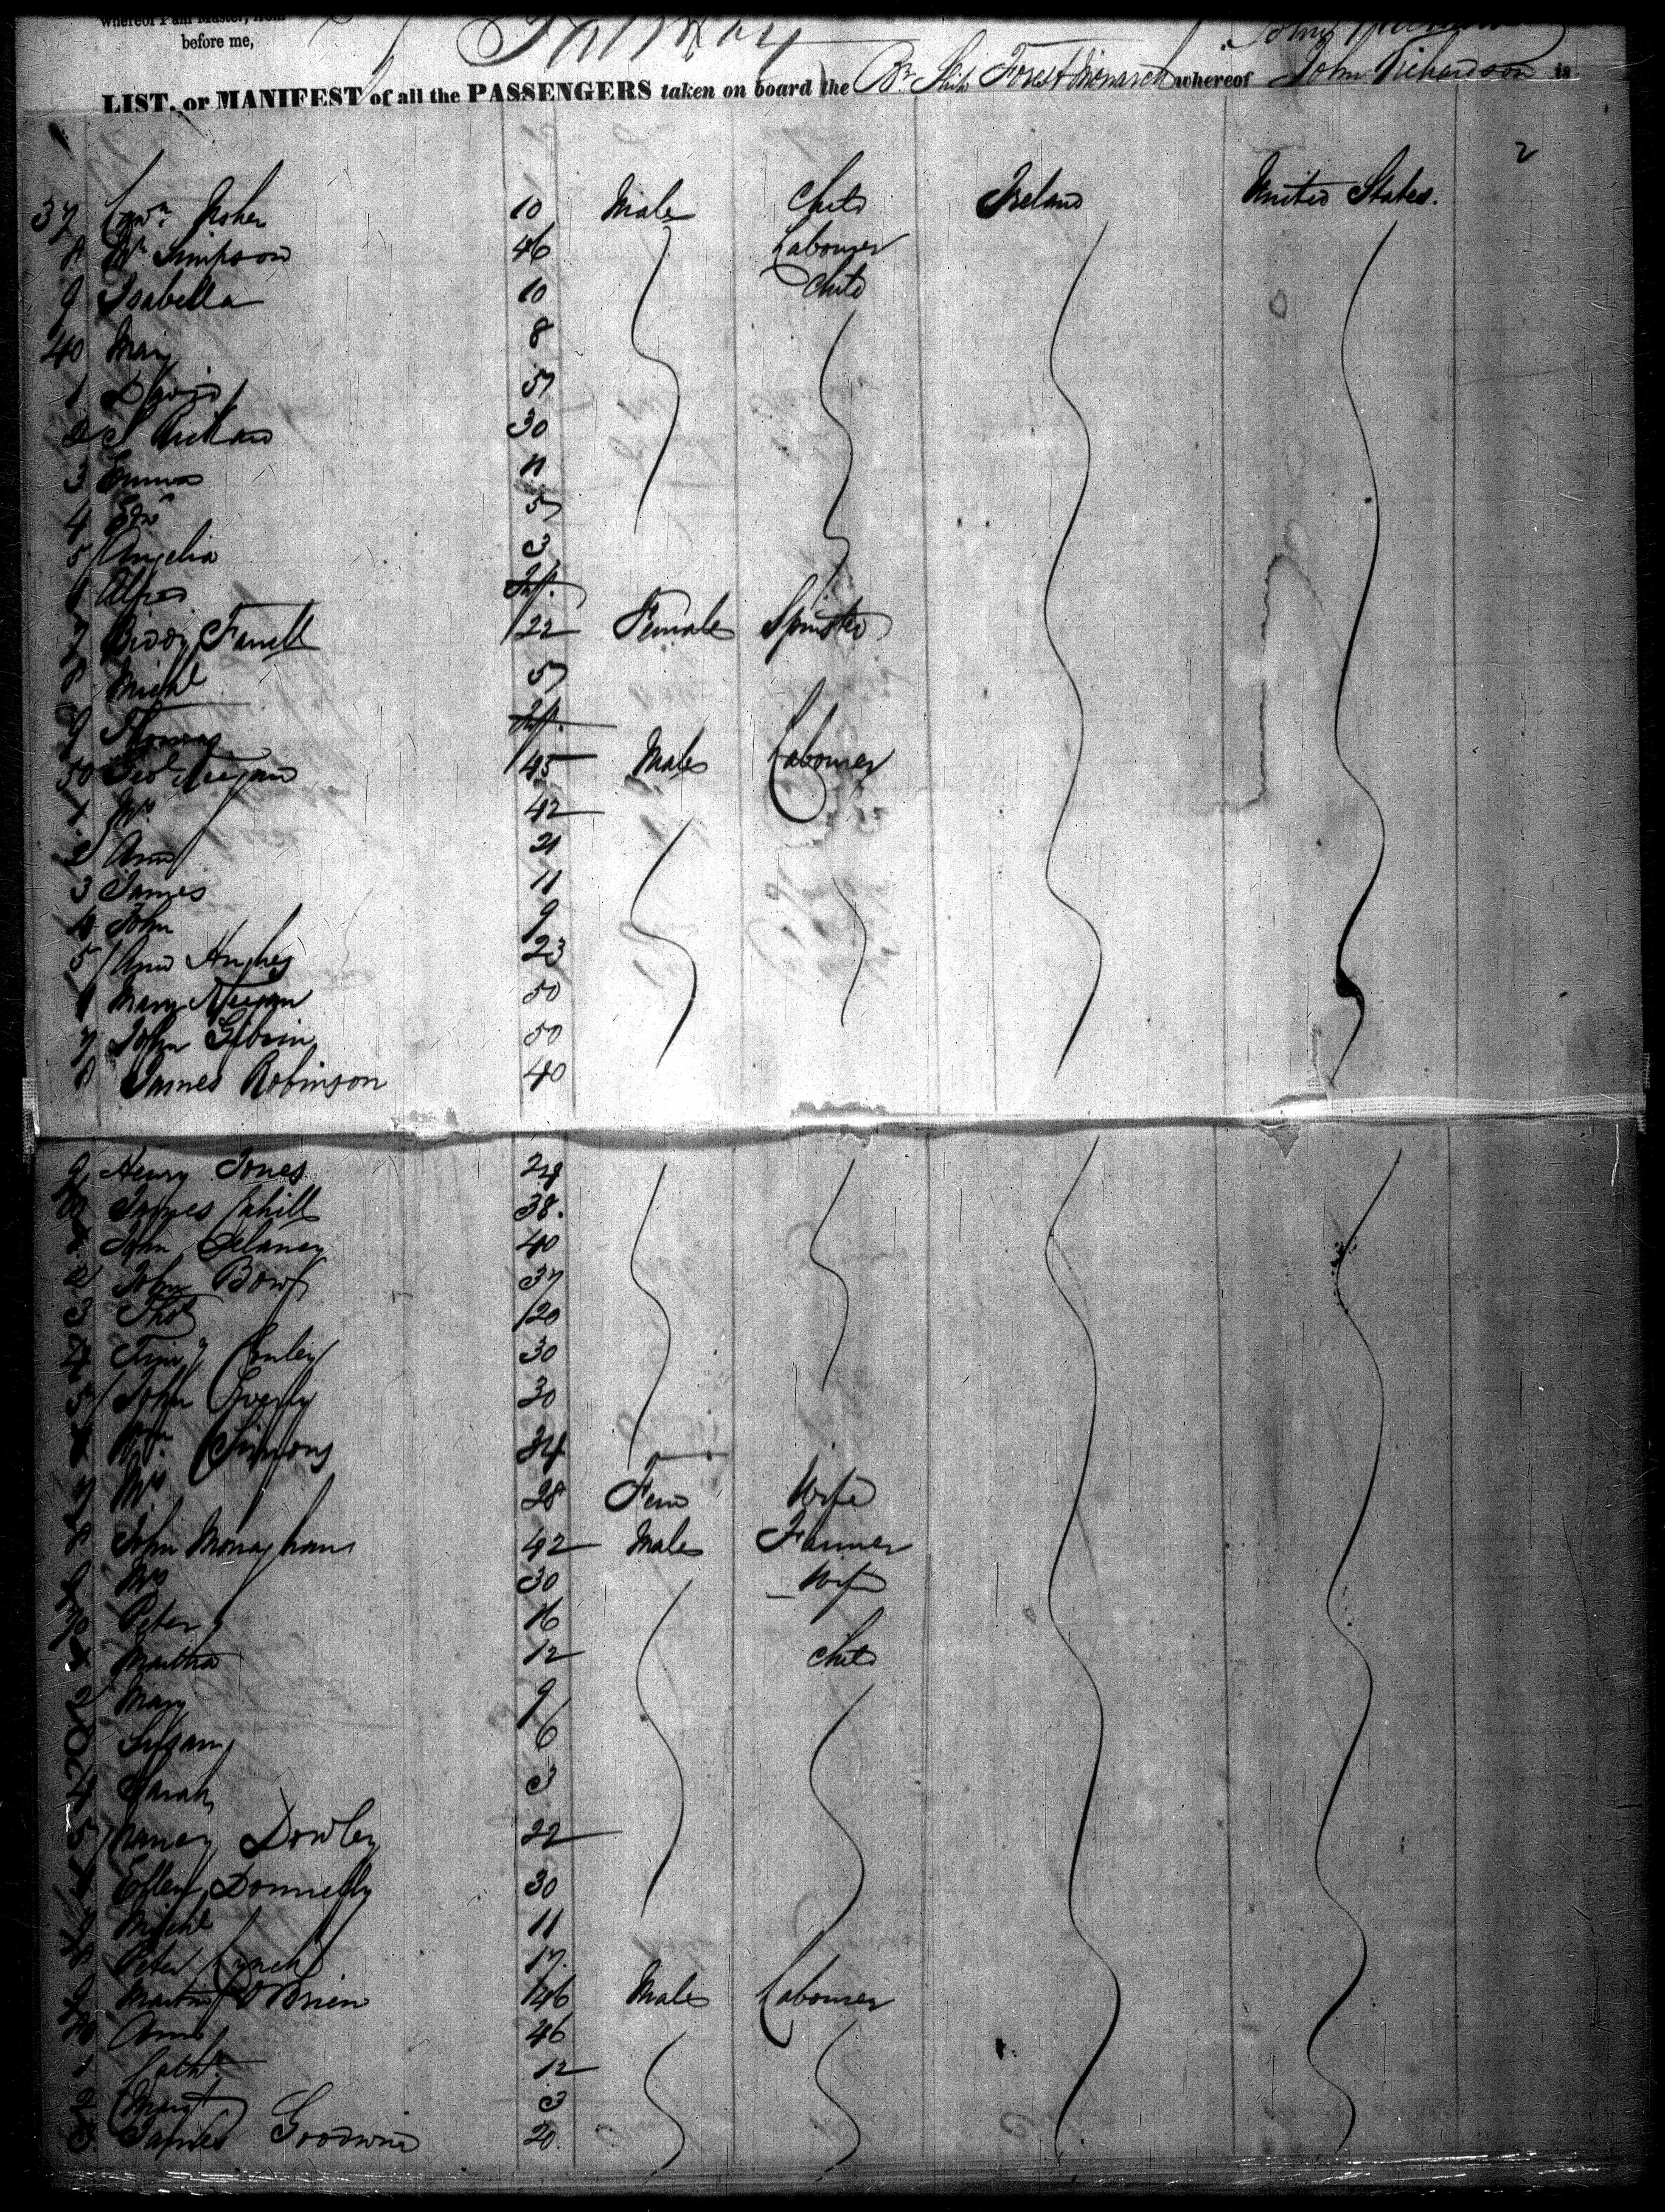 whereof I am Master, from
before me,
LIST, or MANIFEST of all the PASSENGERS taken on board the Br Ship Forest Monarch whereof John Richardson is
2
37 Edwd Maher 10 Male Child Ireland United States.
8 Wm Simpson 46 Labourer
9 Isabella 10 Child
40 Mary 8
1 David 5
2 S Rickard 30
3 Emma 11
4 Edwd 5
5 Angelia 3
6 Alfred Inft.
7 Biddy Farrell 22 Female Spinster
8 Michl 5
9 Thomas Inft.
50 Geo Keegan 45 Male Labourer
1 Mrs 42
2 Ann 21
3 James 11
4 John 9
5 Ann Hughes 23
6 Mary Keegan 50
7 John Gibson 50
8 James Robinson 40
9 Henry Jones 24
60 James Cahill 38.
1 John Delaney 40
2 John Bow 37
3 Thos 20
4 Timy Conley 30
5 John 30
6 Wm Simmons 34
7 Mrs 28 Fem Wife
8 John Monaghan 42 Male Farmer
9 Mrs 30 Wife
70 Peter 16
1 Martha 12 Child
2 Mary 9
3 Susan 6
4 Sarah 3
5 Nancy Dowley 22
6 Ellen Donnelly 30
7 Michl 11
8 Peter Lynch 17.
9 Martin O'Brien 46 Male Labourer
80 Ann 46
1 Cath. 12
2 Margt 3
3 James Goodwin 20.